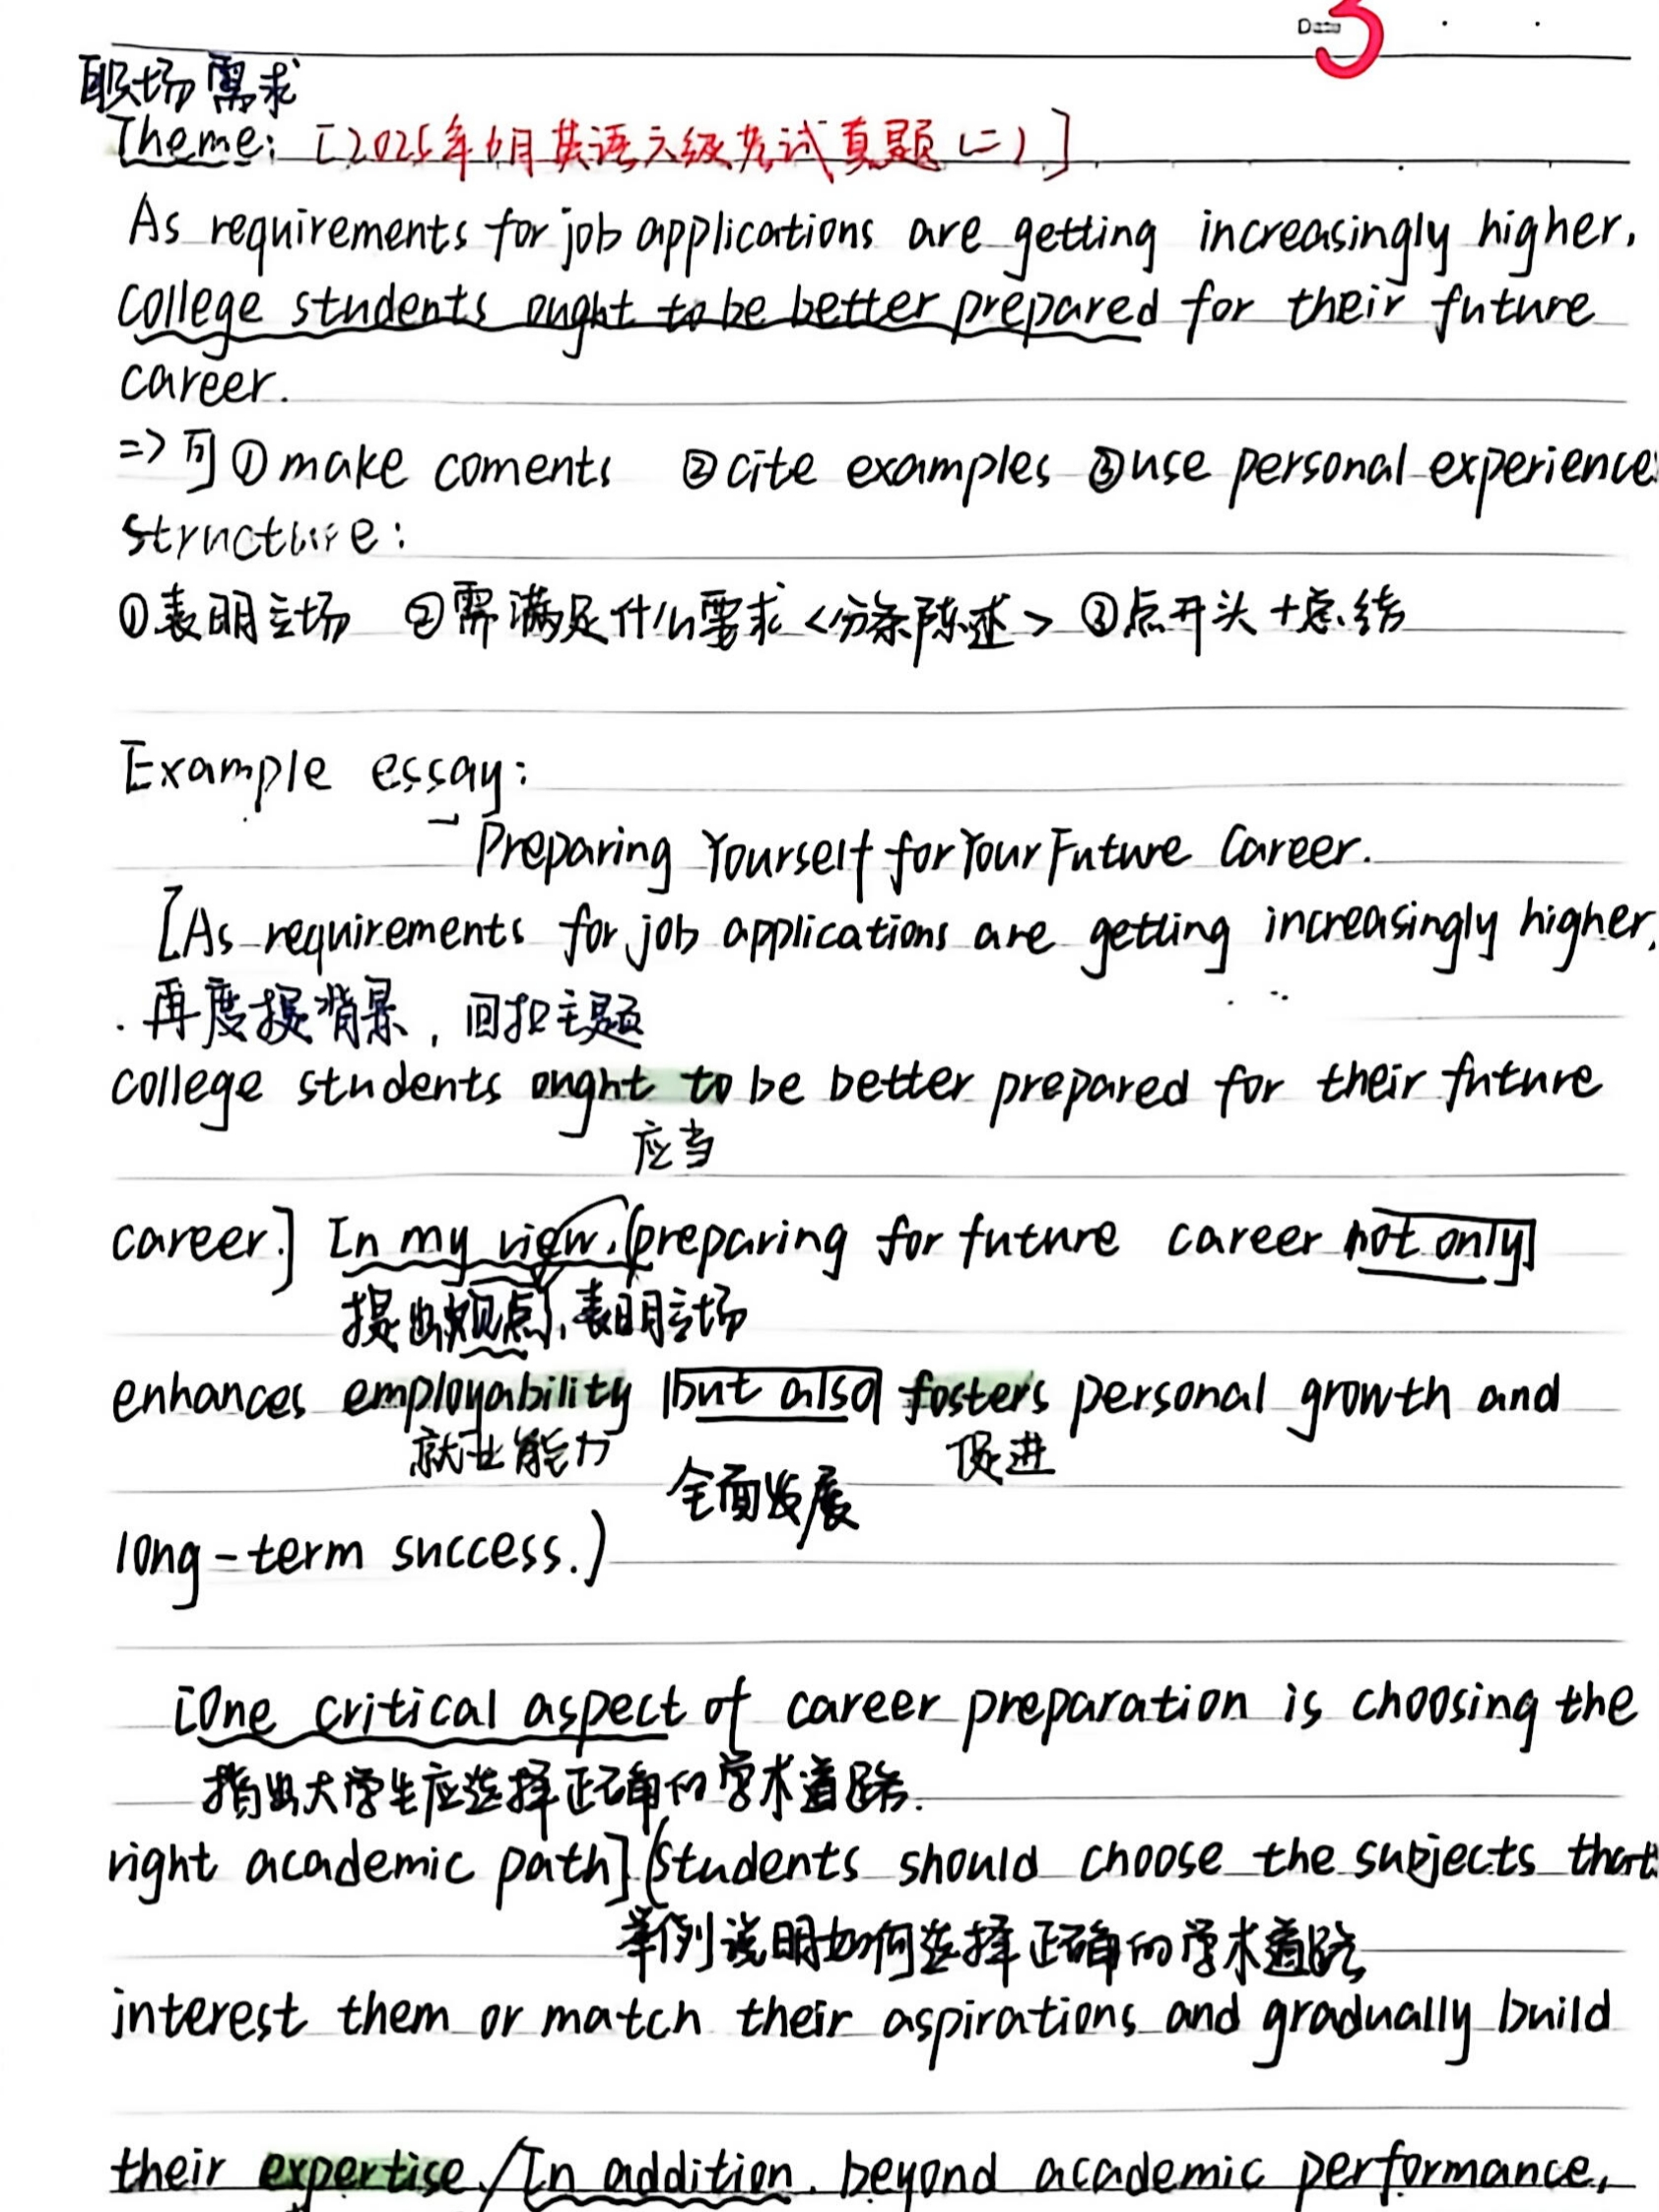 Date 3
职场需求
Theme: [2025年6月英语六级考试真题(二)]
As requirements for job applications are getting increasingly higher,
college students ought to be better prepared for their future
career.
=> 可 ①make coments ②cite examples ③use personal experience
structure:
①表明立场 ②需满足什么要求<分条陈述> ③点开头+总结
Example essay:
Preparing Yourself for Your Future Career.
[As requirements for job applications are getting increasingly higher,
再度提背景，回扣主题
college students ought to be better prepared for their future
应当
career.] In my view, (preparing for future career not only
提出观点，表明立场
enhances employability but also fosters personal growth and
就业能力 全面发展 促进
long-term success.)
[One critical aspect of career preparation is choosing the
指出大学生应选择正确的学术道路.
right academic path] (Students should choose the subjects that
举例说明如何选择正确的学术道路
interest them or match their aspirations and gradually build
their expertise./In addition, beyond academic performance,